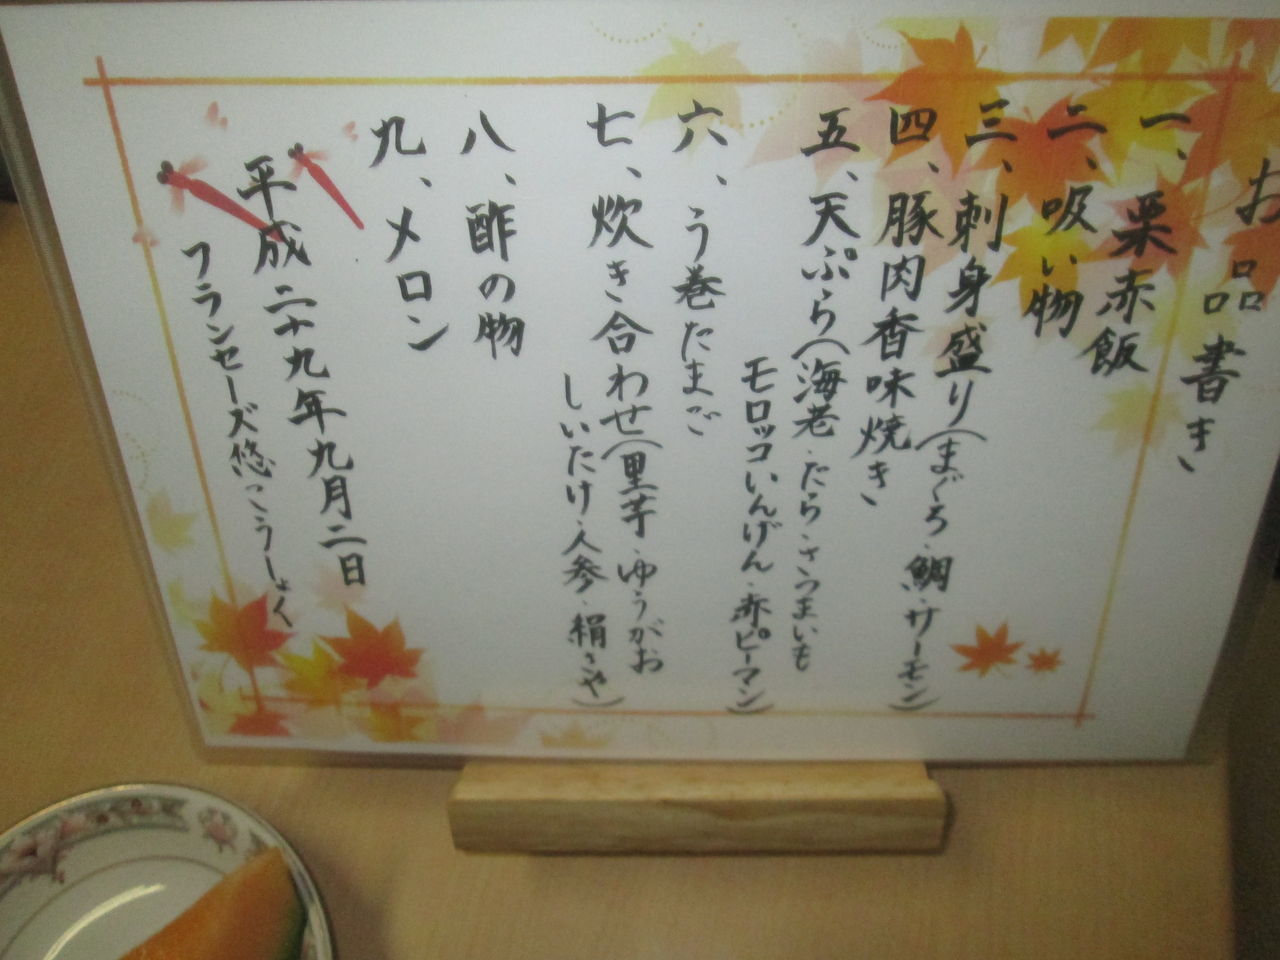 お品書き
一、栗赤飯
二、吸い物
三、刺身盛り(まぐろ・鯛・サーモン)
四、豚肉香味焼き
五、天ぷら(海老・たら・さつまいも
モロッコいんげん・赤ピーマン)
六、う巻たまご
七、炊き合わせ(里芋・ゆうがお
しいたけ・人参・絹さや)
八、酢の物
九、メロン
平成二十九年九月二日
フランセーズ悠こうしょく